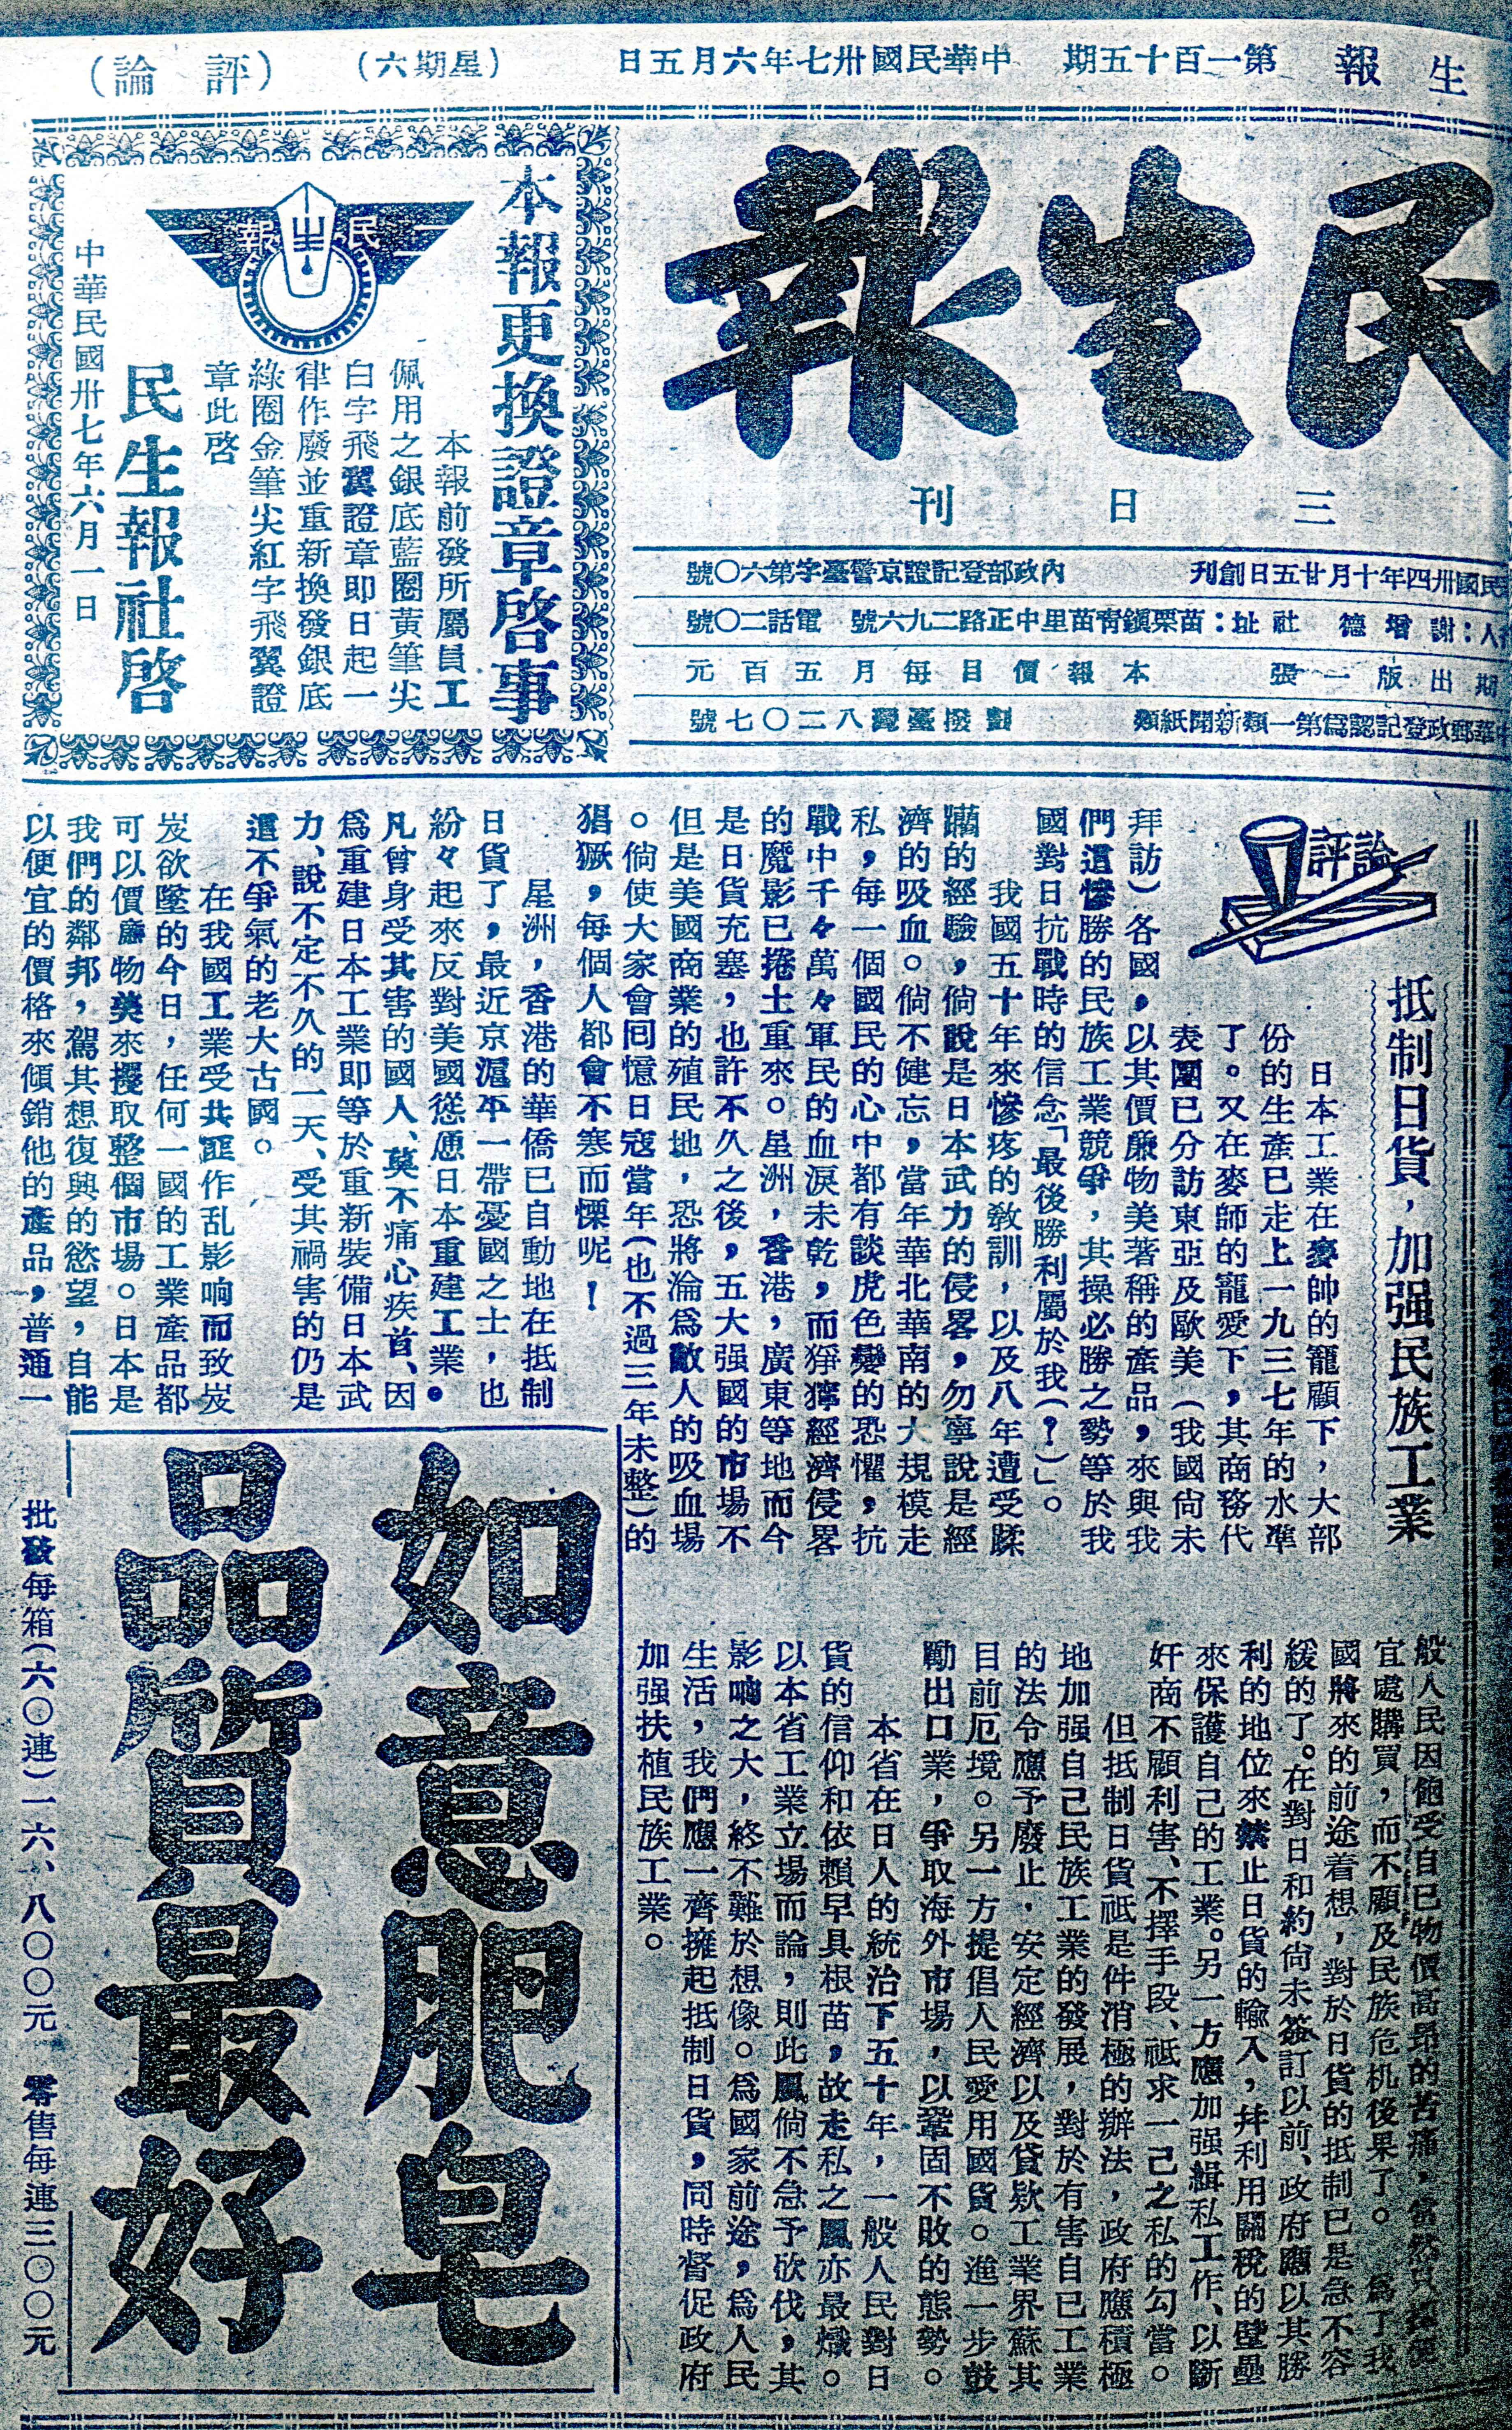 生報　第一百十五期　中華民國卅七年六月五日　（星期六）　（評論）
民生報
三日刊
民國卅四年十月廿五日創刊　內政部登記證京警臺字第六〇號
人：謝增德　社址：苗栗鎮青苗里中正路二九六號　電話二〇號
期出版一張　本報價目每月五百元
中華郵政登記認爲第一類新聞紙類　劃撥臺灣八二〇七號
本報更換證章啓事
民生報
本報前發所屬員工
佩用之銀底藍圈黃筆尖
白字飛翼證章即日起一
律作廢並重新換發銀底
綠圈金筆尖紅字飛翼證
章此啓
民生報社啓
中華民國卅七年六月一日
評論
抵制日貨，加强民族工業
日本工業在麥帥的寵顧下，大部
份的生產已走上一九三七年的水準
了。又在麥帥的寵愛下，其商務代
表團已分訪東亞及歐美（我國尙未
拜訪）各國，以其價廉物美著稱的產品，來與我
們這慘勝的民族工業競爭，其操必勝之勢等於我
國對日抗戰時的信念「最後勝利屬於我（？）」。
我國五十年來慘疼的教訓，以及八年遭受蹂
躪的經驗，倘說是日本武力的侵畧，勿寧說是經
濟的吸血。倘不健忘，當年華北華南的大規模走
私，每一個國民的心中都有談虎色變的恐懼，抗
戰中千々萬々軍民的血淚未乾，而猙獰經濟侵畧
的魔影已捲土重來。星洲，香港，廣東等地而今
是日貨充塞，也許不久之後，五大强國的市場不
但是美國商業的殖民地，恐將淪爲敵人的吸血場
。倘使大家會回憶日寇當年（也不過三年未整）的
猖獗，每個人都會不寒而慄呢！
星洲，香港的華僑已自動地在抵制
日貨了，最近京滬平一帶憂國之士，也
紛々起來反對美國慫恿日本重建工業。
凡曾身受其害的國人、莫不痛心疾首、因
爲重建日本工業即等於重新裝備日本武
力、說不定不久的一天、受其禍害的仍是
這不爭氣的老大古國。
在我國工業受共匪作乱影响而致岌
岌欲墜的今日，任何一國的工業產品都
可以價廉物美來攫取整個市場。日本是
我們的鄰邦，駕其想復興的慾望，自能
以便宜的價格來傾銷他的產品，普通一
般人民因飽受自已物價高昂的苦痛，當然只揀便
宜處購買，而不顧及民族危机後果了。爲了我
國將來的前途着想，對於日貨的抵制已是急不容
緩的了。在對日和約尙未簽訂以前、政府應以其勝
利的地位來禁止日貨的輸入，幷利用關稅的壁壘
來保護自己的工業。另一方應加强緝私工作、以斷
奸商不顧利害、不擇手段、祗求一己之私的勾當。
但抵制日貨祗是件消極的辦法，政府應積極
地加强自己民族工業的發展，對於有害自已工業
的法令應予廢止，安定經濟以及貸欵工業界蘇其
目前厄境。另一方提倡人民愛用國貨。進一步鼓
勵出口業，爭取海外市場，以鞏固不敗的態勢。
本省在日人的統治下五十年，一般人民對日
貨的信仰和依賴早具根苗，故走私之風亦最熾。
以本省工業立場而論，則此風倘不急予砍伐，其
影响之大，終不難於想像。爲國家前途，爲人民
生活，我們應一齊擁起抵制日貨，同時督促政府
加强扶植民族工業。
如意肥皂
品質最好
批發每箱（六〇連）一六、八〇〇元　零售每連三〇〇元